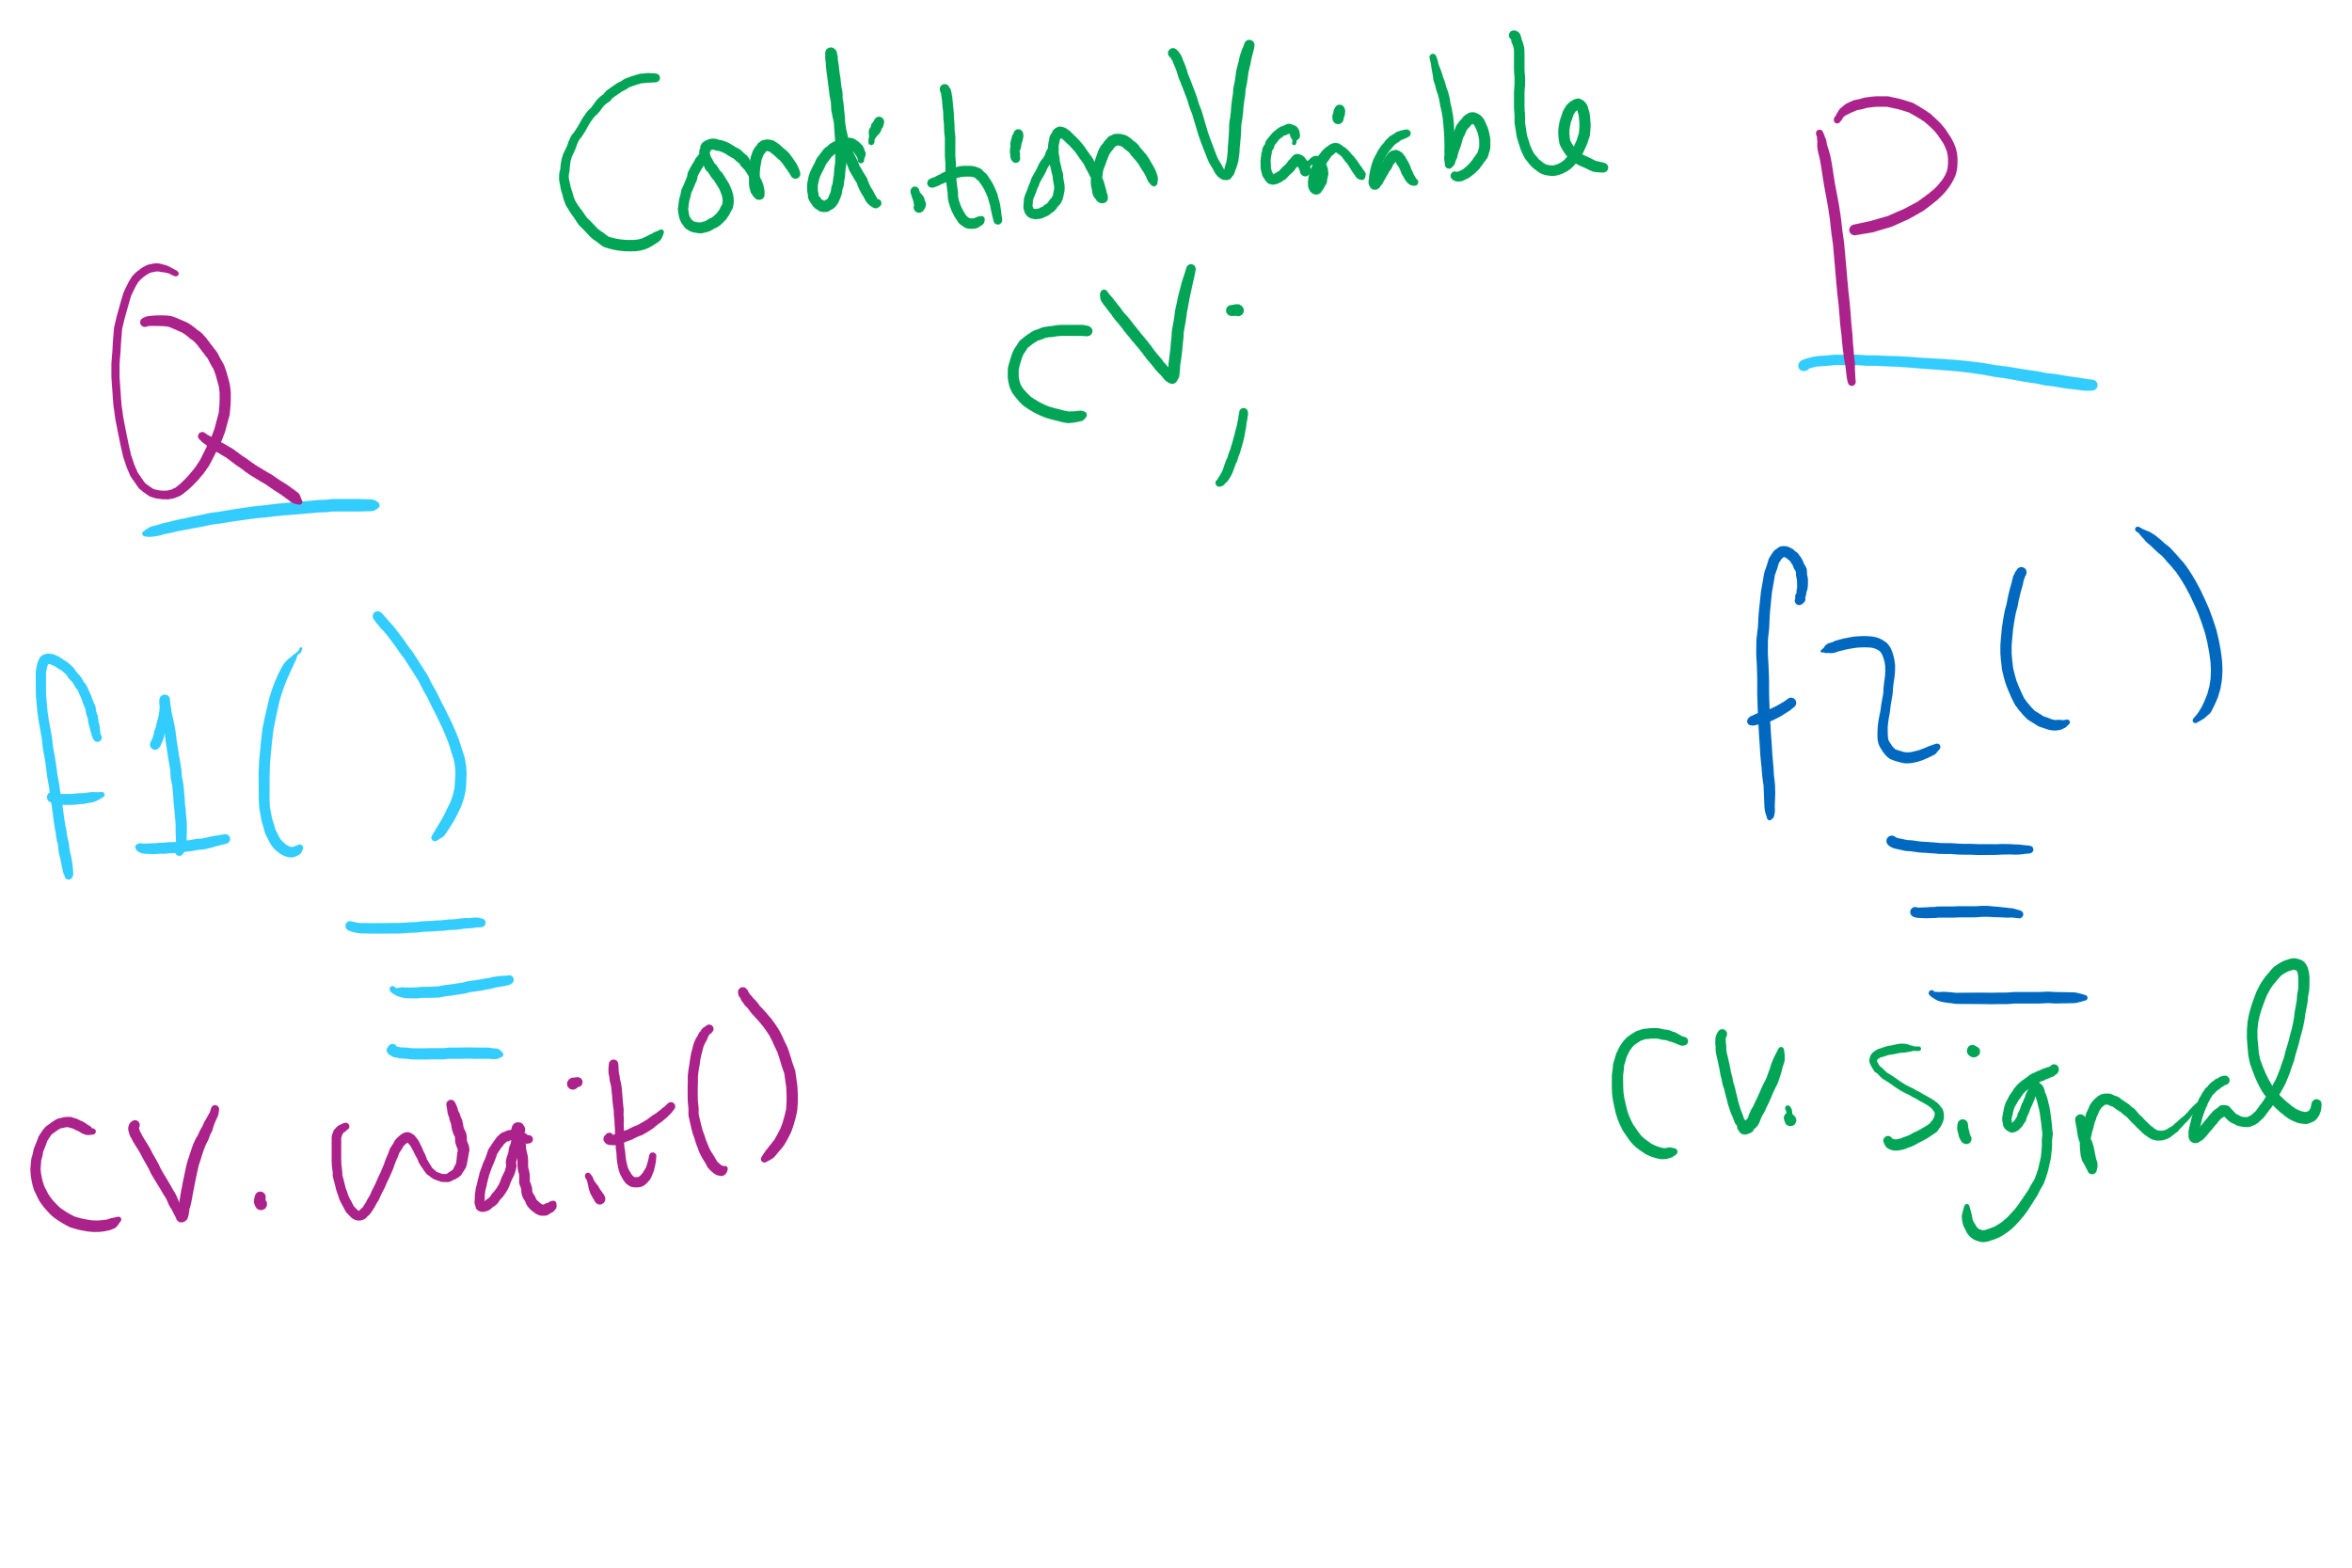 Condition Variable
cv;
Q
P
f1()
f2()
cv.wait()
cv.signal